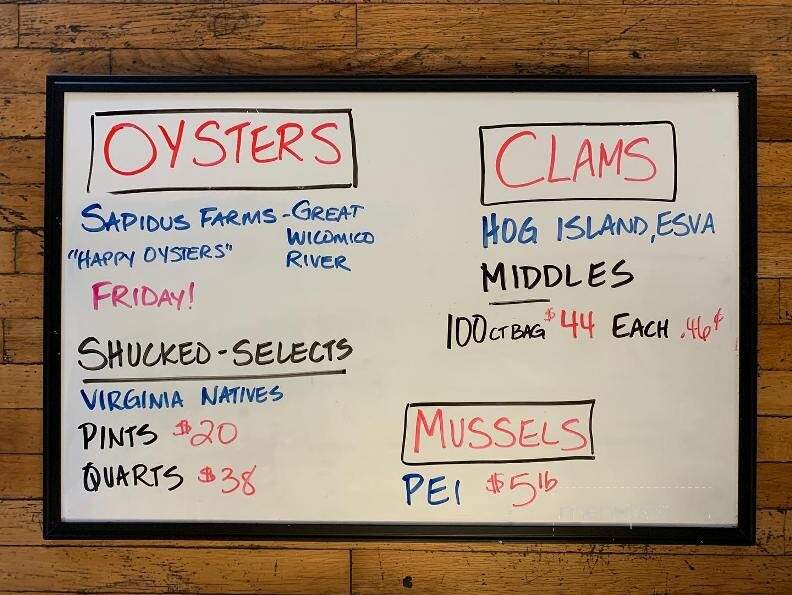 OYSTERS
SAPIDUS FARMS - GREAT
WICOMICO
"HAPPY OYSTERS"
RIVER
FRIDAY!
SHUCKED - SELECTS
VIRGINIA NATIVES
PINTS $20
QUARTS $38
CLAMS
HOG ISLAND, ESVA
MIDDLES
100 CT BAG $44 EACH .46¢
MUSSELS
PEI $5 lb